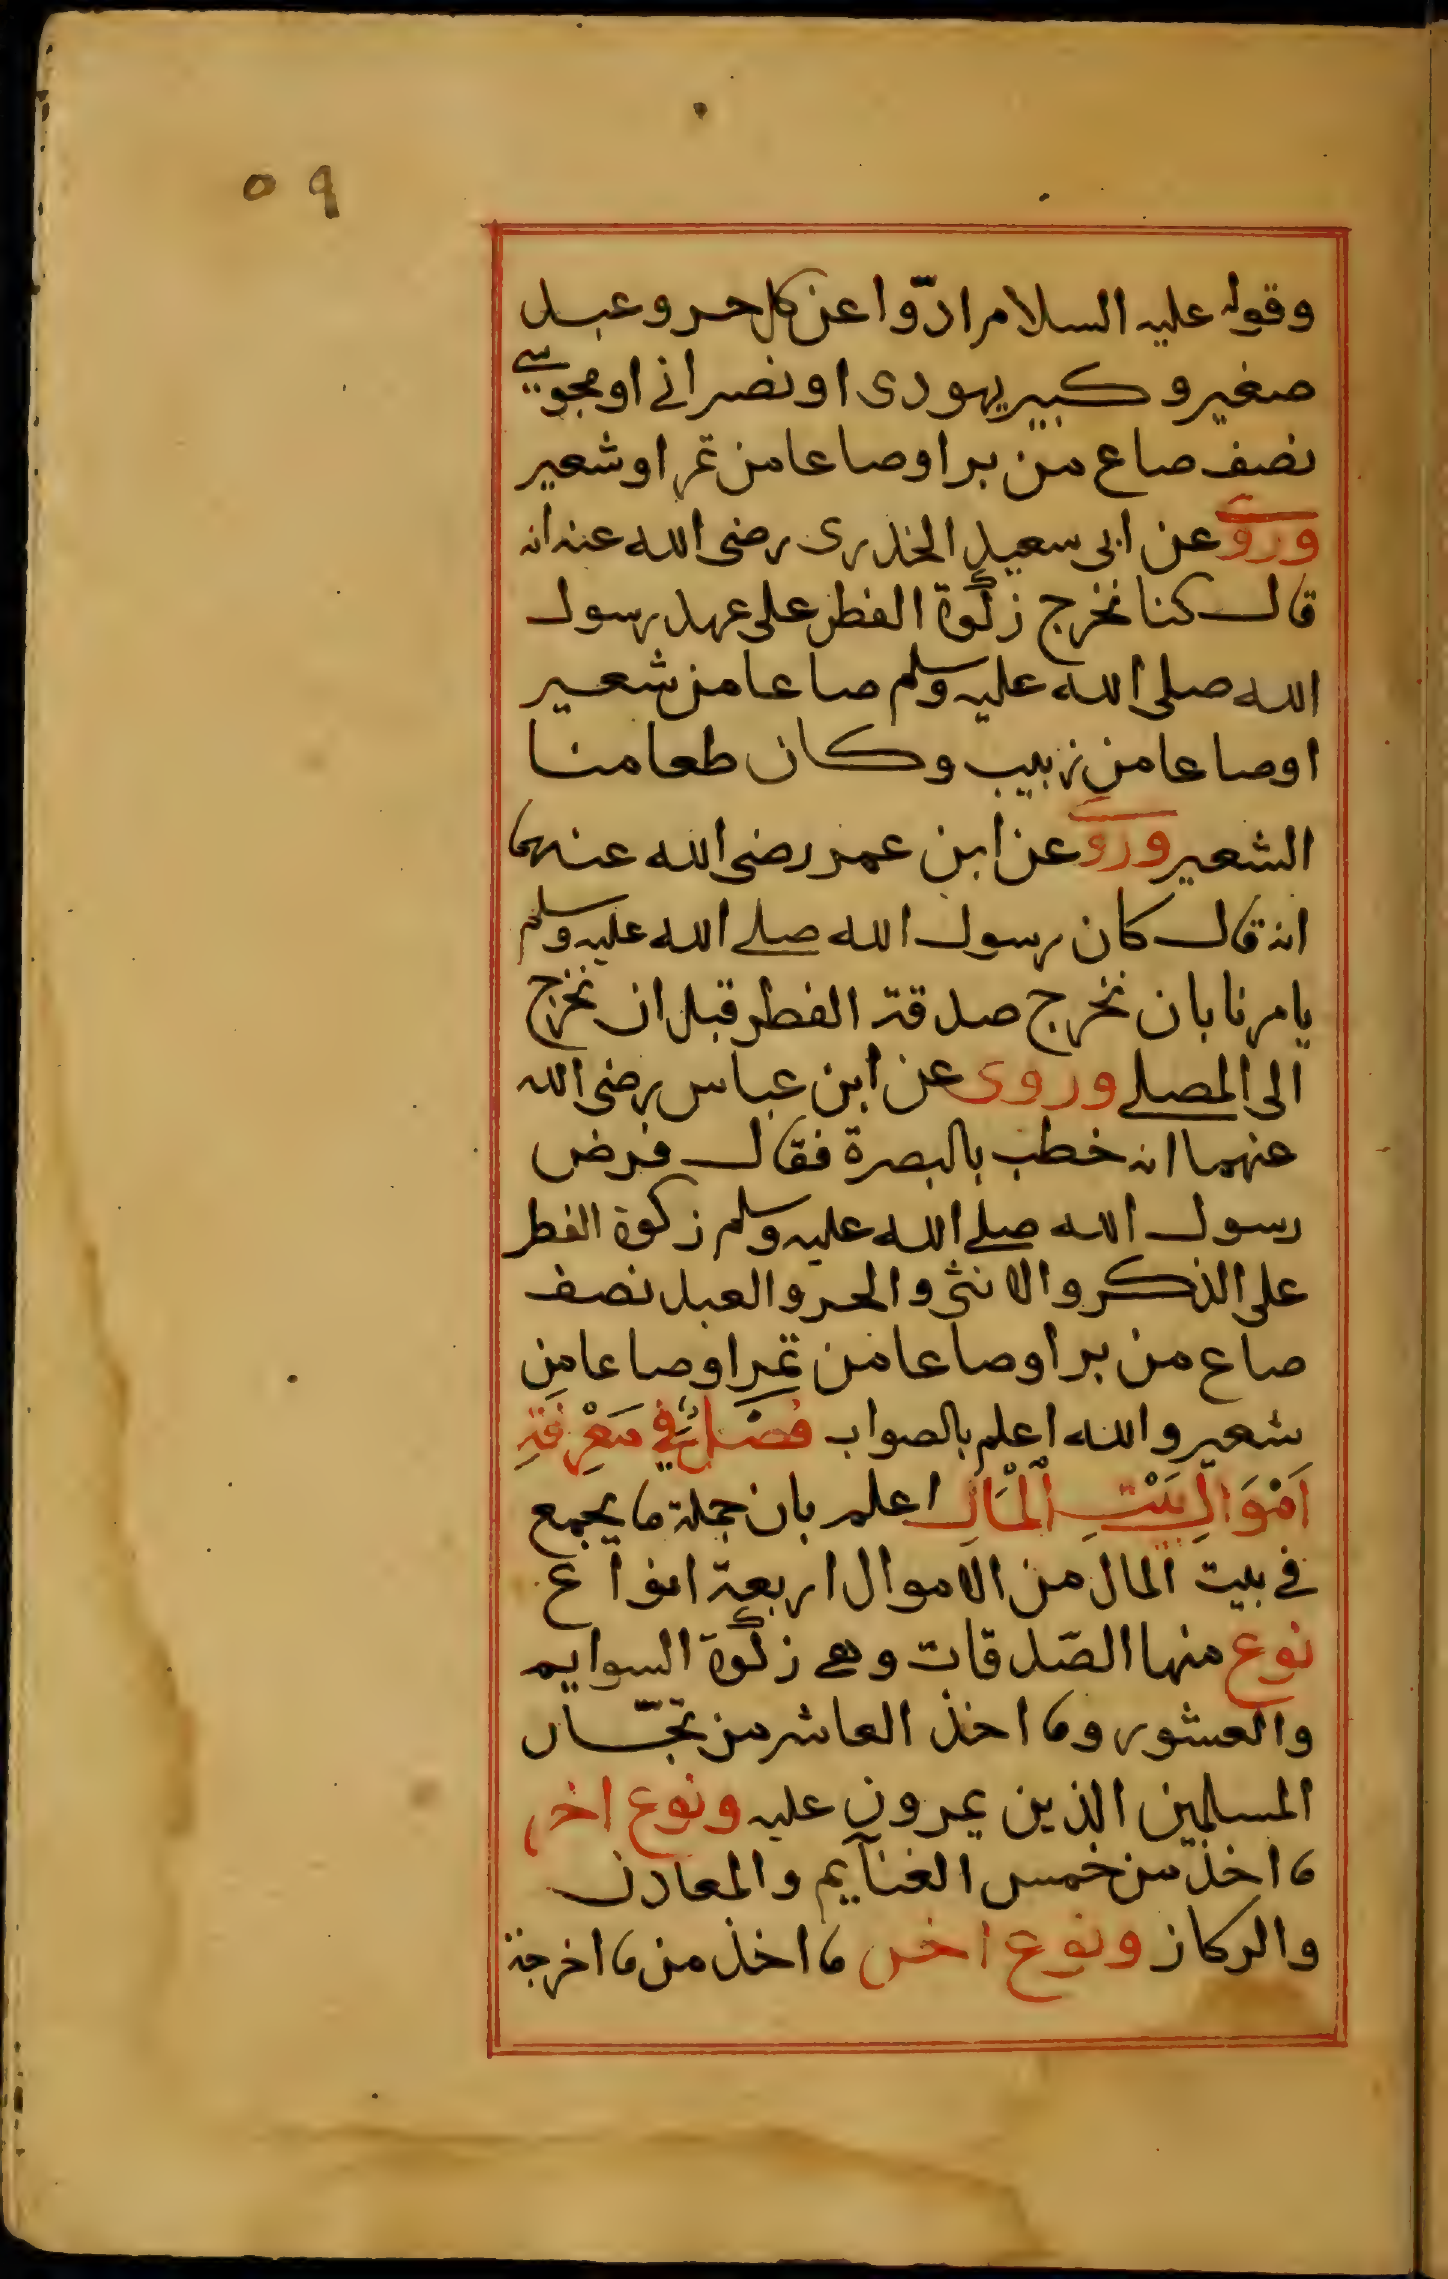 ٥٩
وقوله عليه السلام ادّوا عن كل حر وعبد
صغير وكبير يهودى او نصرانے او مجوسے
نصف صاع من بر او صاعا من تمر او شعير
وروى عن ابى سعيد الخدرى رضى الله عنه انه
قال كنا نخرج زكوة الفطر على عهد رسول
الله صلى الله عليه وسلم صاعا من شعير
او صاعا من زبيب وكان طعامنا
الشعير وروى عن ابن عمر رضى الله عنهما
انه قال كان رسول الله صلے الله عليه وسلم
يامرنا بان نخرج صدقة الفطر قبل ان نخرج
الى المصلے وروى عن ابن عباس رضى الله
عنهما انه خطب بالبصرة فقال فرض
رسول الله صلے الله عليه وسلم زكوة الفطر
على الذكر والانثى والحر والعبد نصف
صاع من بر او صاعا من تمر او صاعا من
شعير والله اعلم بالصواب فَصْلٌ فِي مَعْرِفَةِ
اَمْوَالِ بَيْتِ الْمَالِ اعلم بان جملة ما يجمع
فے بيت المال من الاموال اربعة انواع
نوع منها الصّدقات وهے زكوة السوايم
والعشور وما اخذ العاشر من تجّار
المسلمين الذين يمرون عليه ونوع اخر
ما اخذ من خمس الغنآيم والمعادن
والركاز ونوع اخر ما اخذ من ما اخرجة